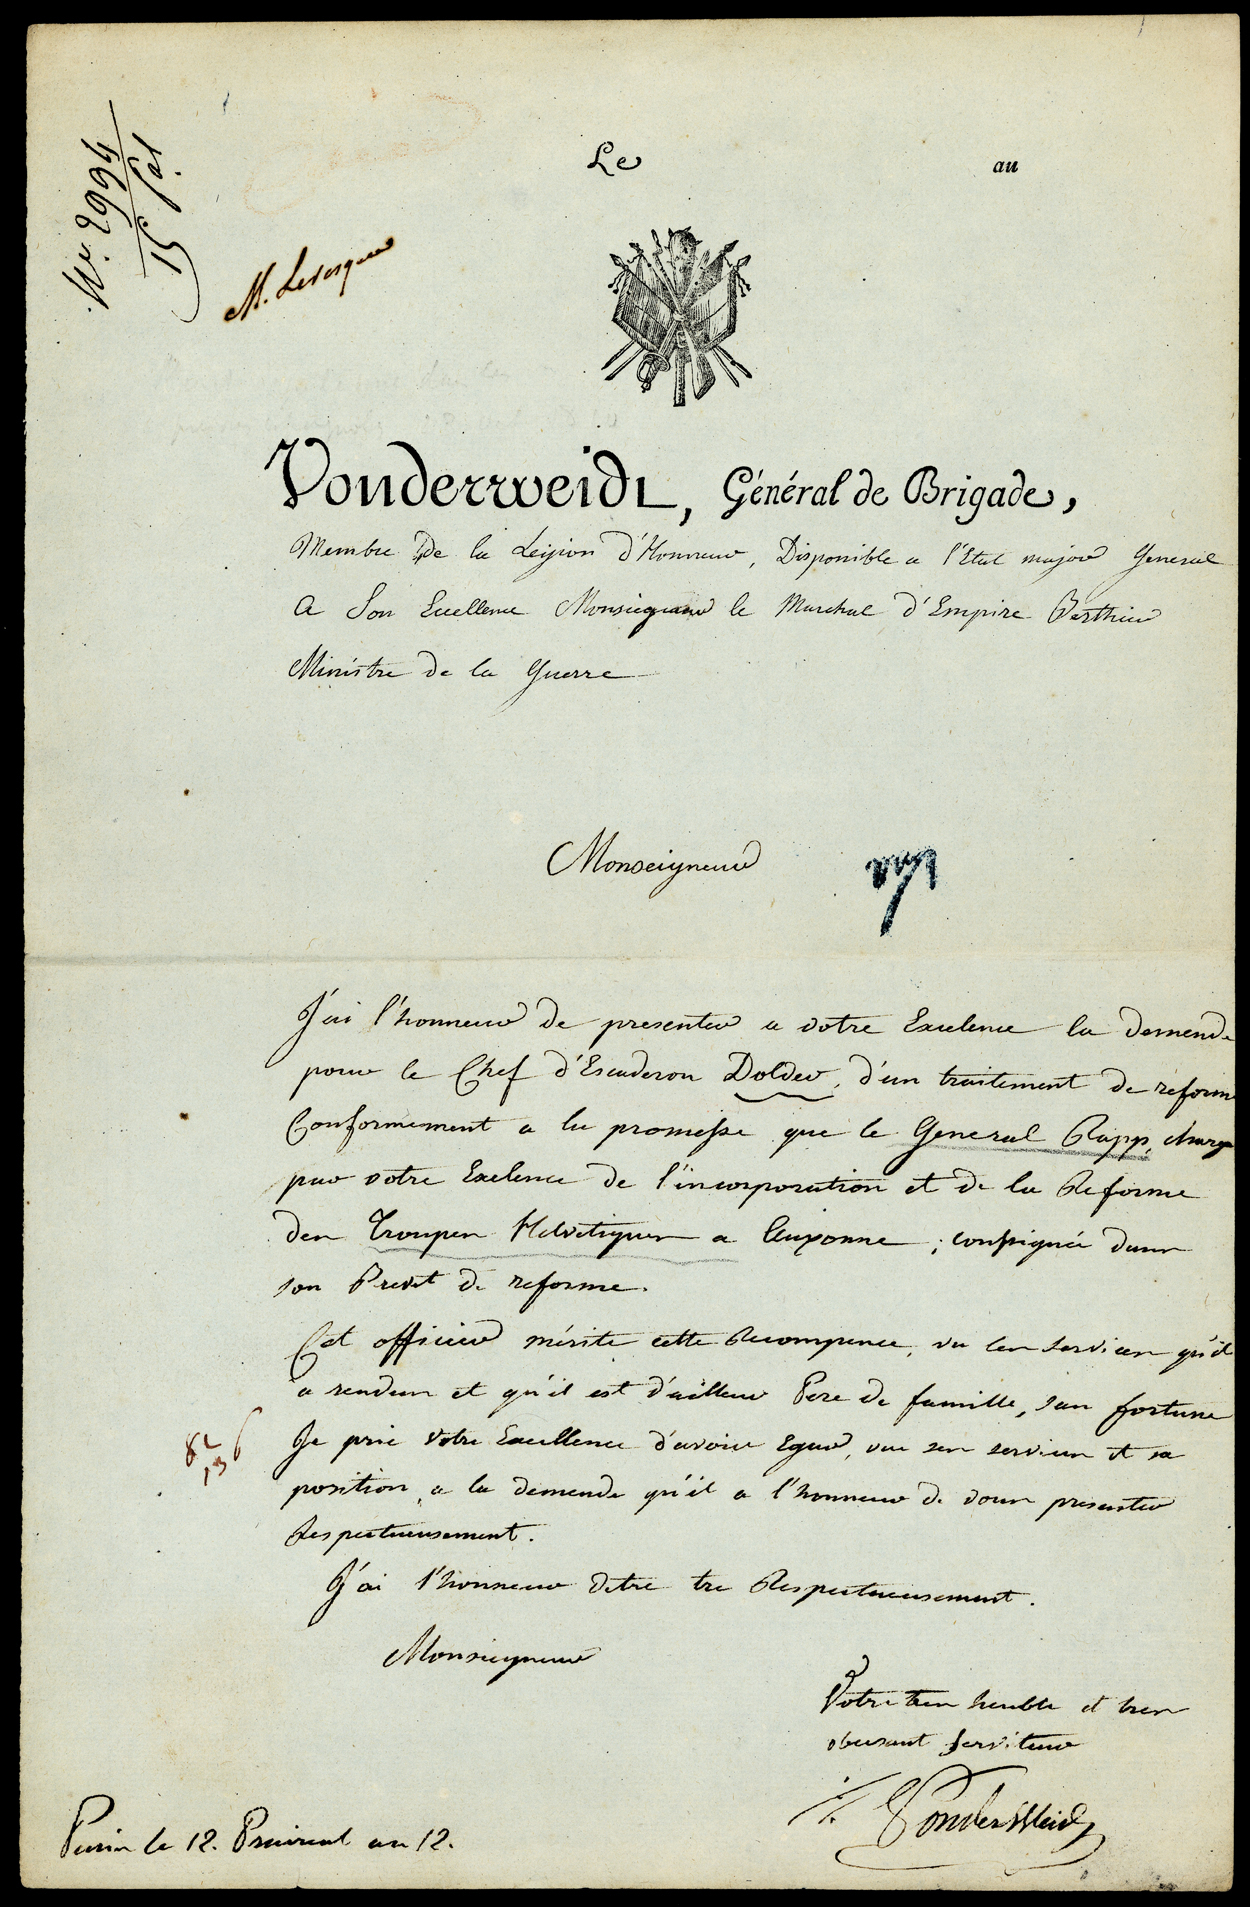 Nº 2994
15 
M. Levesque
Le au
Vonderweidt, Général de Brigade,
Membre De la Legion d'Honneur, Disponible a l'Etat major General
A Son Excellence Monseigneur le Marchal d'Empire Berthier
Ministre de la Guerre
Monseigneur
J'ai l'honneur de presenter a votre Excelence la demende
pour le Chef d'Escaderon Dolder, d'un traitement de reform
Conformement a la promesse que le General Rapp, charge
par votre Exelence de l'incorporation et de la Reforme
des Troupes Helvetiques a Auxonne; consigniée dans
son Brevet de reforme.
Cet officier mérite cette Recompence, vu les services qu'il
a rendus et qu'il est d'ailleur Pere de famille, san fortune
Je prie Votre Excellence d'avoir Egard, vu ses services et sa
position, a la demende qu'il a l'honneur de vous presenter
Respectueusement.
J'ai l'honneur d'etre tre Respectueusement.
Monseigneur
Votre tres humble et tres
obeisant serviteur
Vonderweid
Paris le 12. Prairial an 12.